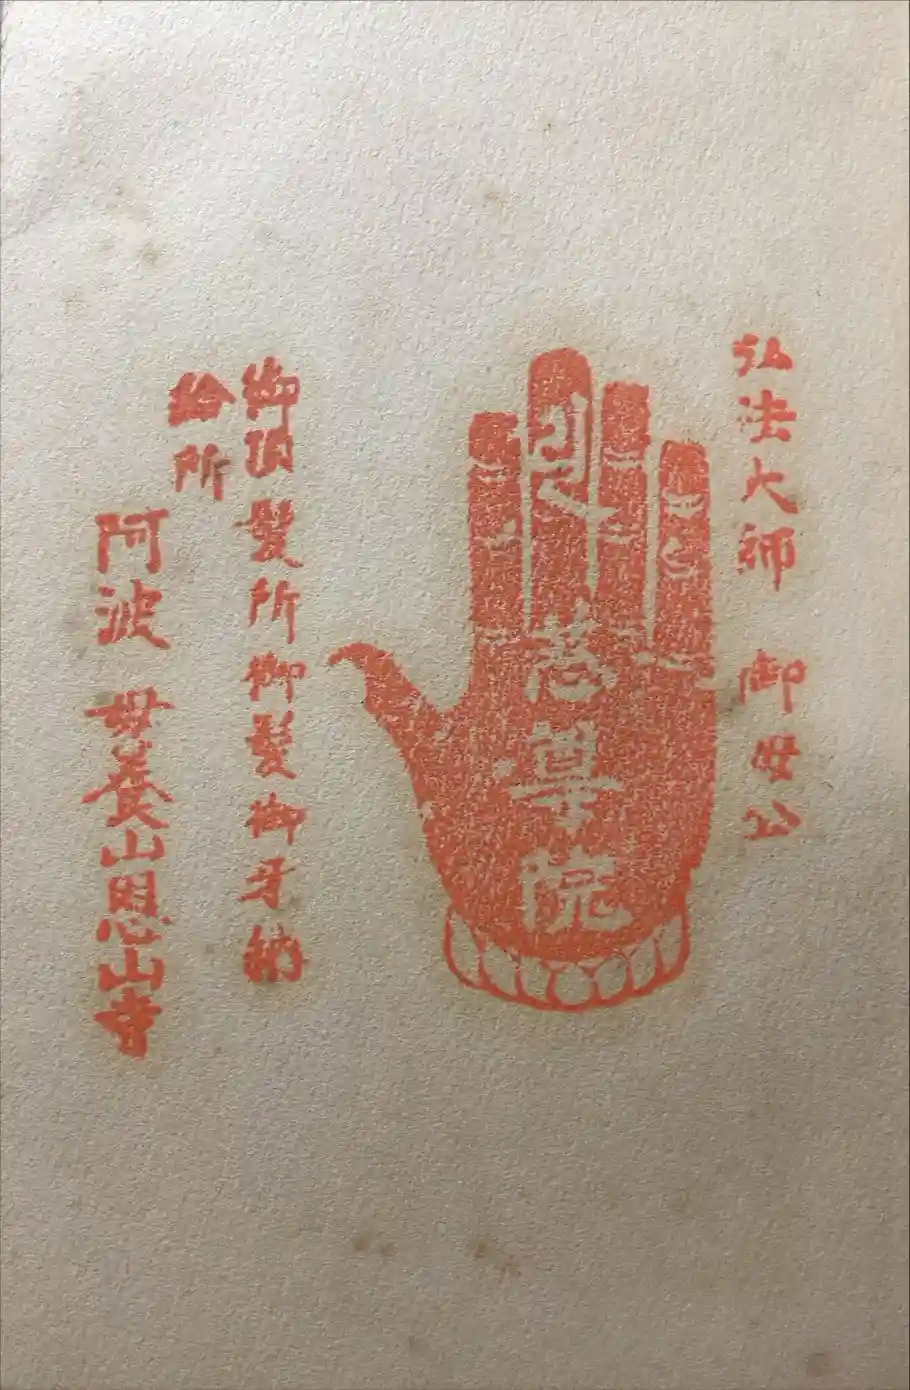 弘法大師 御母公
華院
御頂髪所御髪御牙納
給所
阿波 母養山恩山寺